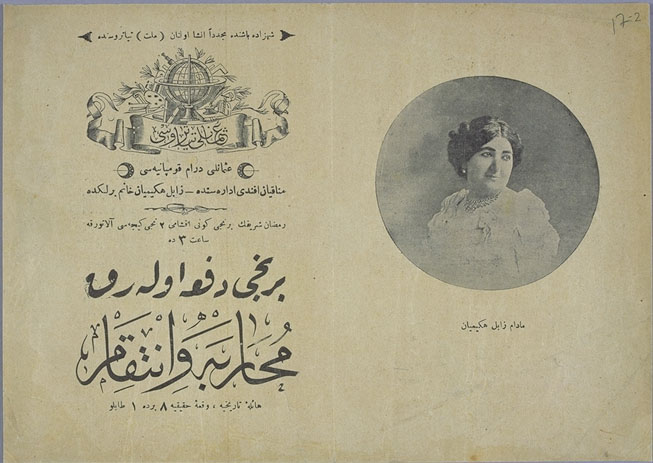 شهزاده باشنده مجدداً انشا اولنان (ملت) تياتروسنده
عثمانلى درام قومپانيه‌سى
مناقيان افندى اداره سنده — زابل هكيميان خانم برلكده
رمضان شريفك برنجى كونى اقشامى ٢ نجى كيجه‌سى آلاتورقه
ساعت ٣ ده
برنجى دفعه اوله رق
محاربه وانتقام
هائلهٔ تاريخيه ، وقعهٔ حقيقيه ٨ پرده ١ طابلو
17-2
مادام زابل هكيميان